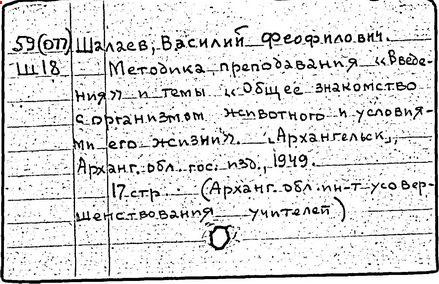 59(07) Шалаев, Василий Феофилович.
Ш18 Методика преподавания „Введе-
ния" и темы „Общее знакомство
с организмом животного и условия-
ми его жизни". Архангельск,
Арханг. обл. гос. изд., 1949.
17 стр. (Арханг. обл. ин-т усовер-
шенствования учителей)